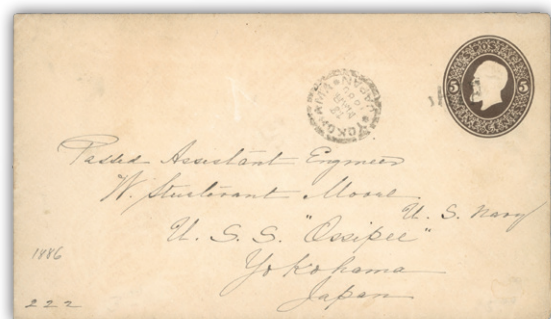 5 5
YOKOHAMA JAPAN
Passed Assistant Engineer
W. Sturtevant Moore
U. S. Navy
U. S. S. "Ossipee"
Yokohama
Japan
1886
222